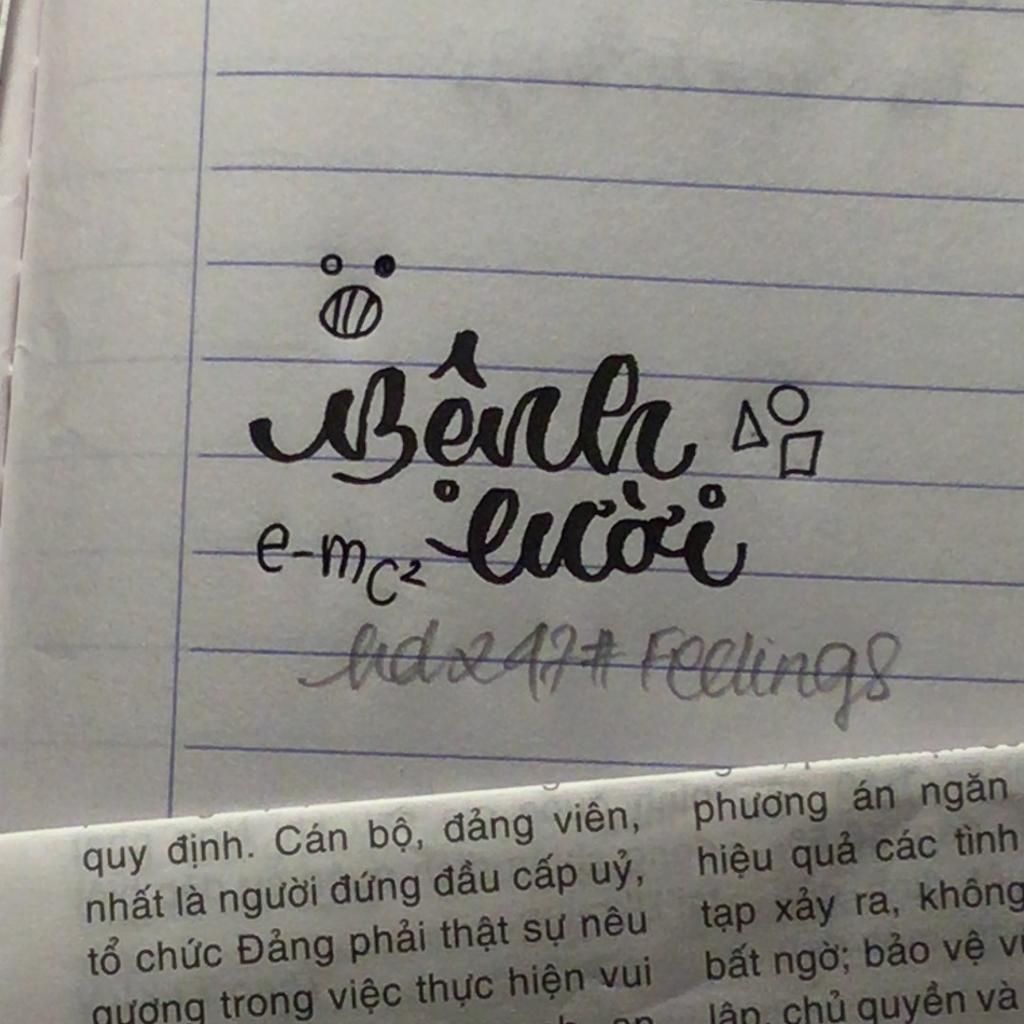 Bệnh
lười
e-mc²
hdx247# Feelings
quy định. Cán bộ, đảng viên,
nhất là người đứng đầu cấp uỷ,
tổ chức Đảng phải thật sự nêu
gương trong việc thực hiện vui
phương án ngăn
hiệu quả các tình
tạp xảy ra, không
bất ngờ; bảo vệ
lập, chủ quyền và